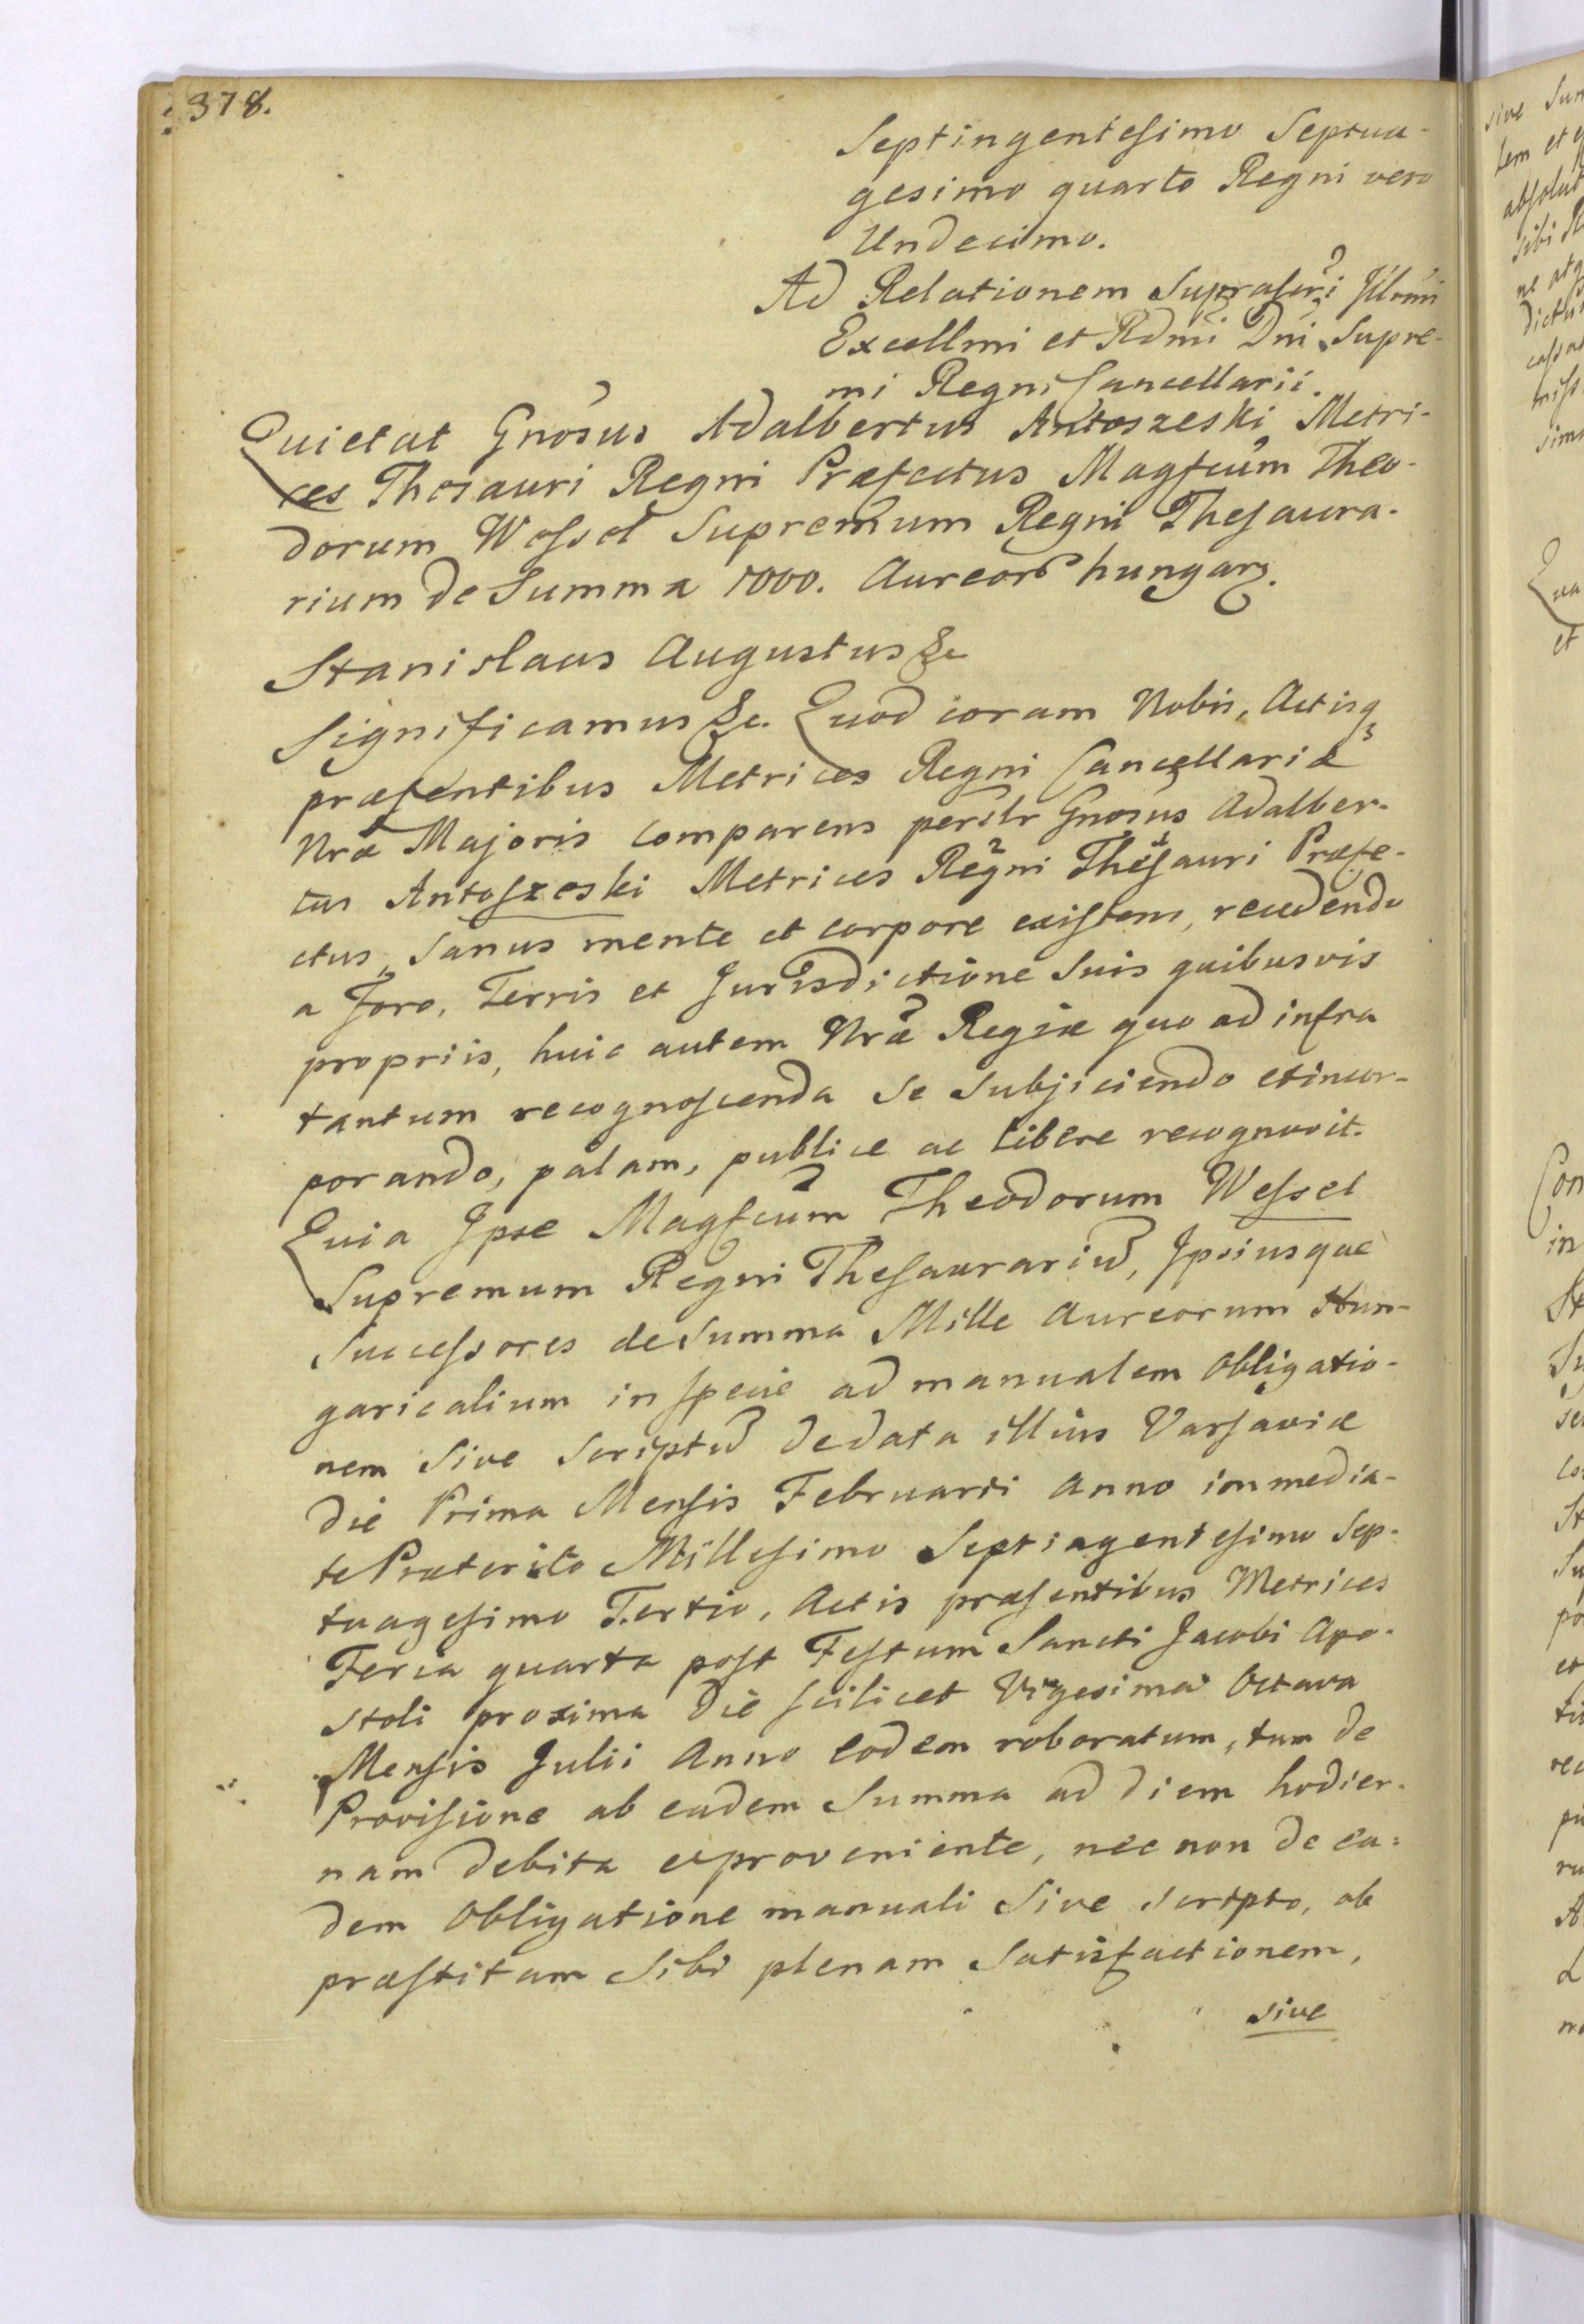 378.
Septingentesimo Septua-
gesimo quarto Regni vero
Undecimo.
Ad Relationem Suprascri Illrmi
Excellmi et Rdmi Dni Supre-
mi Regni Cancellarii.
Quietat Gnosus Adalbertus Antoszeski Metri-
ces Thesauri Regni Præfectus Magfcum Theo-
dorum Wessel Supremum Regni Thesaura-
rium de Summa 1000. Aureor hungar.
Stanislaus Augustus &c
Significamus &c. Quod coram Nobis, Actisq
præsentibus Metrices Regni Cancellariæ
Nræ Majoris comparens persltr Gnosus Adalber-
tus Antoszeski Metrices Regni Thesauri Præfe-
ctus, Sanus mente et corpore existens, recedendo
a Foro, Terris et Jurisdictione Suis quibusvis
propriis, huic autem Nræ Regiæ quo ad infra
tantum recognoscenda Se Subjiciendo et incor-
porando, palam, publice ac libere recognovit.
Quia Ipse Magfcum Theodorum Wessel
Supremum Regni Thesaurariu, Ipsiusque
Successores de Summa Mille Aureorum Hun-
garicalium in Specie ad manualem Obligatio-
nem Sive Scriptu de data illius Varsaviæ
die Prima Mensis Februarii Anno immedia-
te Præterito Millesimo Septingentesimo Sep-
tuagesimo Tertio, Actis præsentibus Metrices
Feria quarta post Festum Sancti Jacobi Apo-
stoli proxima die scilicet Vigesima Octava
Mensis Julii Anno eodem roboratum, tum de
Provisione ab eadem Summa ad diem hodier-
nam debita et proveniente, nec non de ea-
dem Obligatione manuali Sive Scripto, ob
præstitam Sibi plenam Satisfactionem,
sive